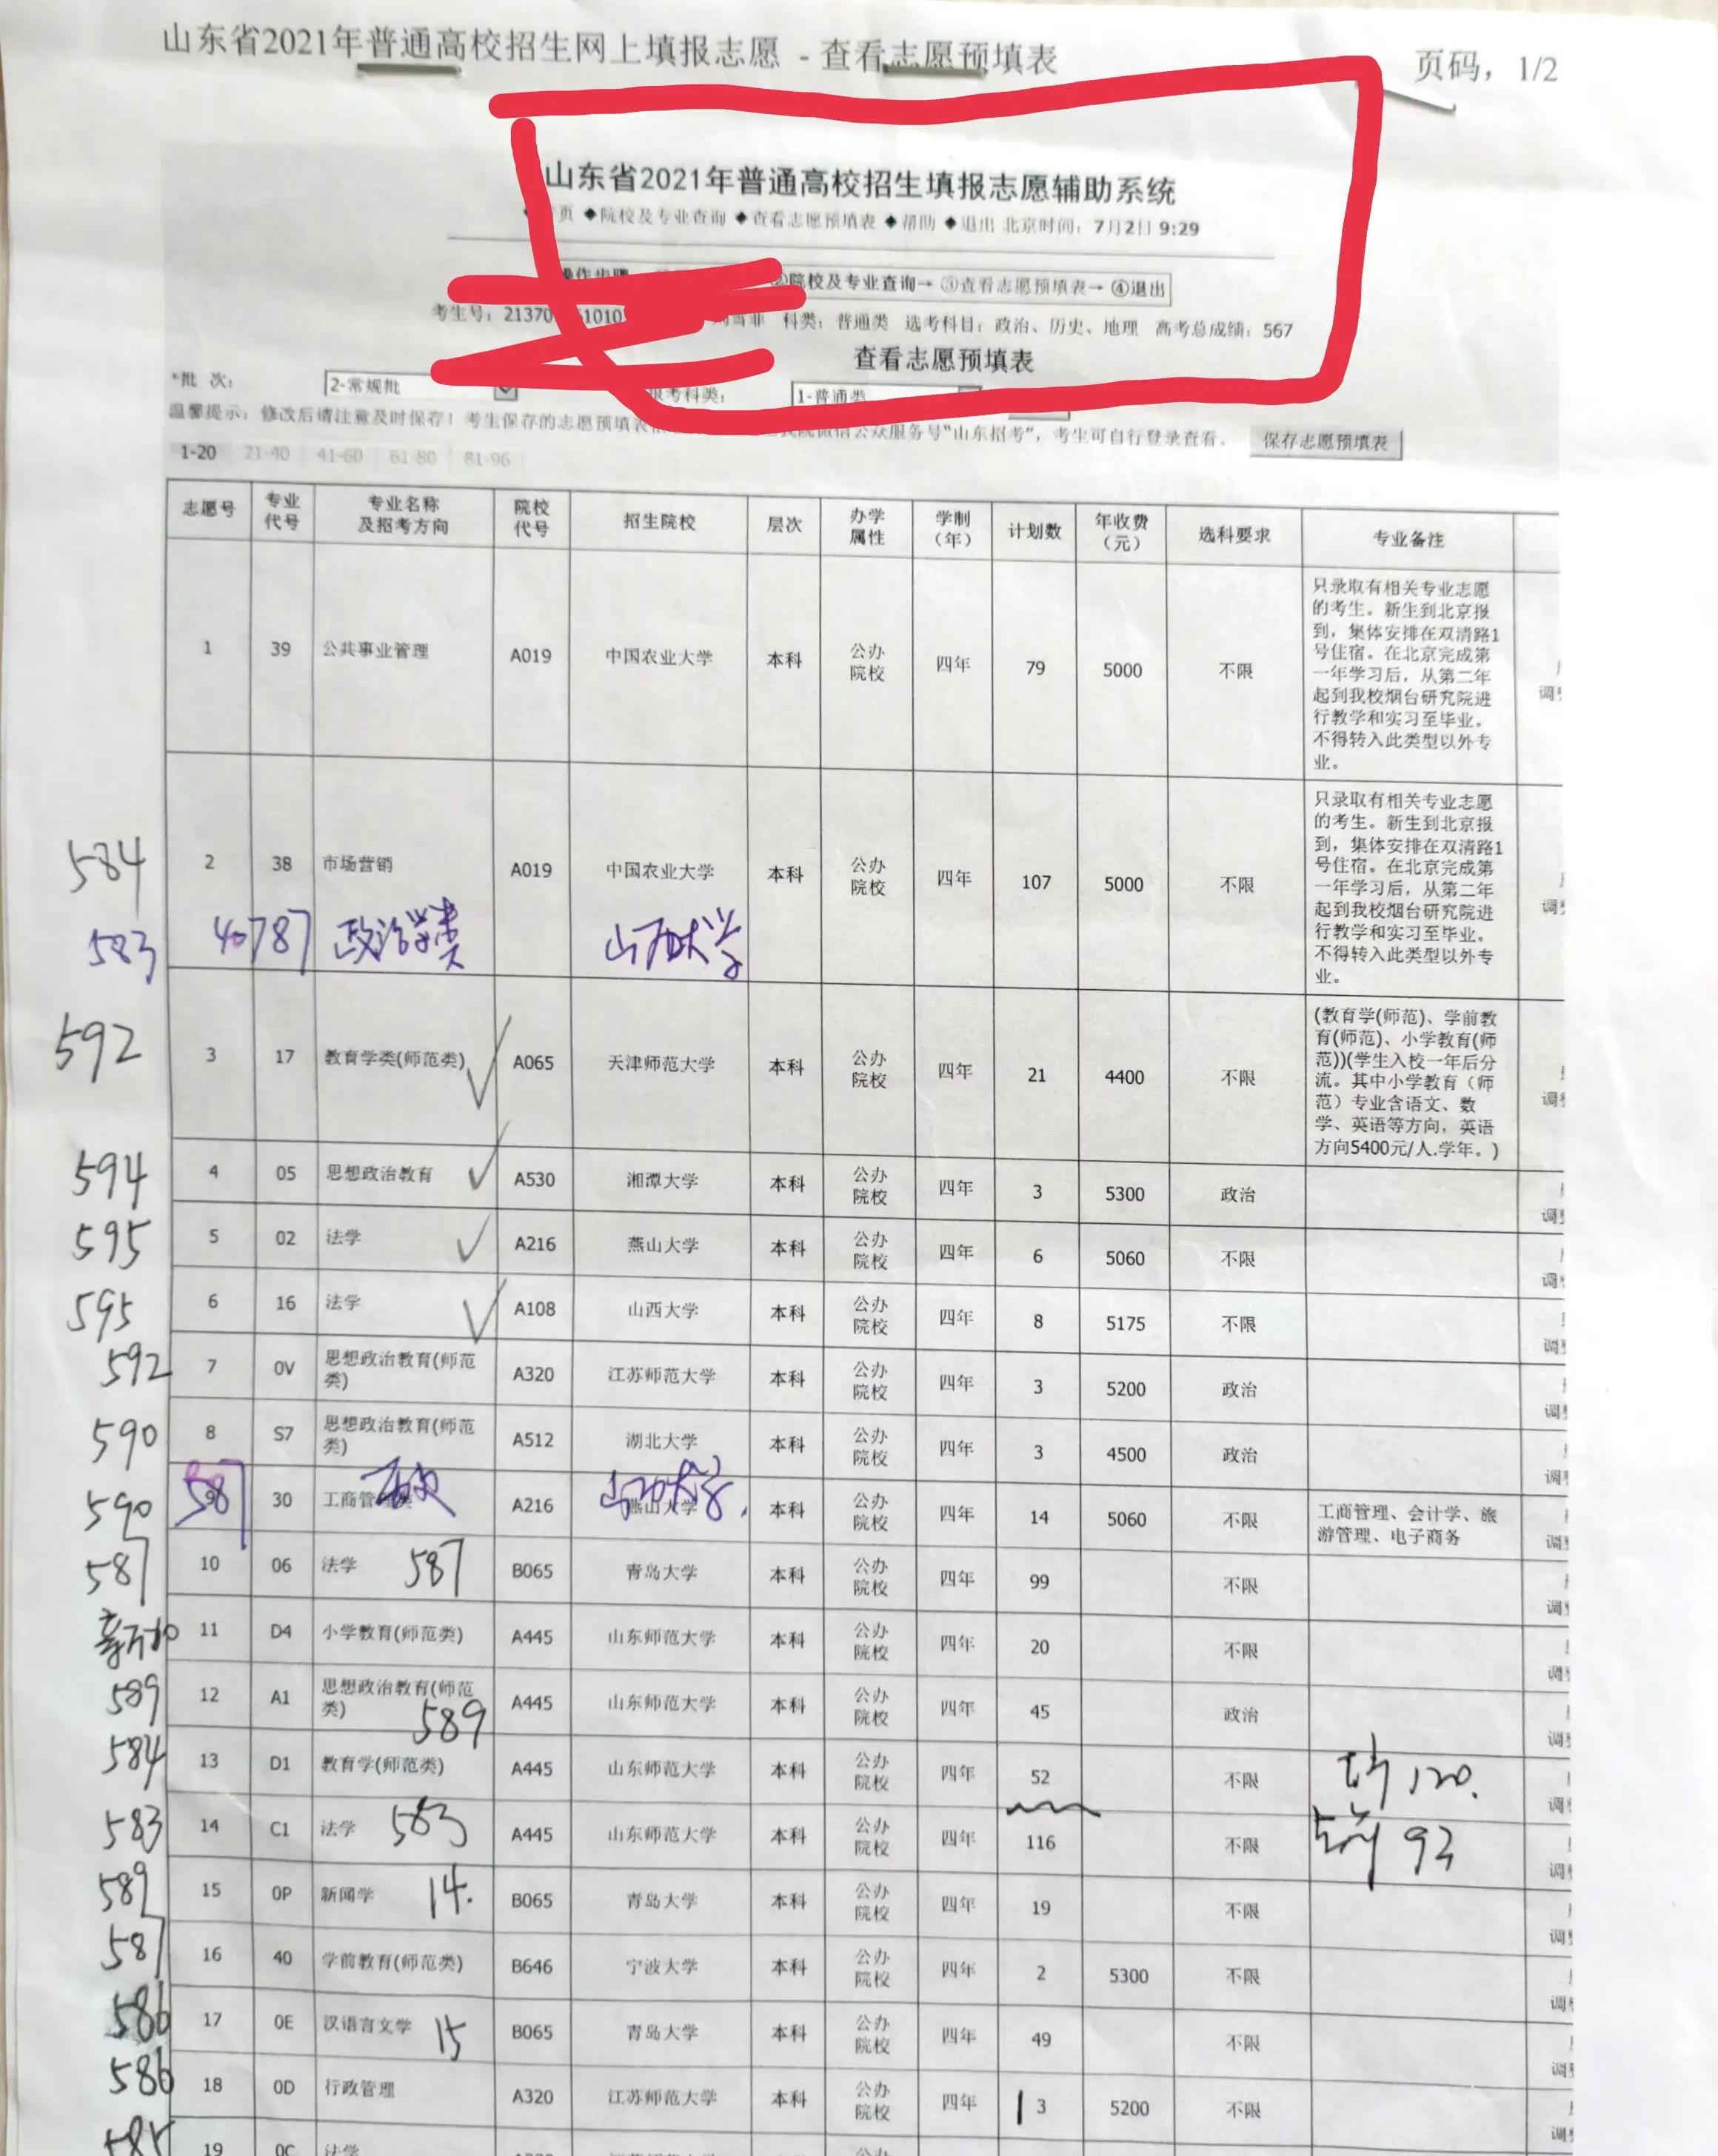 山东省2021年普通高校招生网上填报志愿 - 查看志愿预填表 页码，1/2
山东省2021年普通高校招生填报志愿辅助系统
页 ◆院校及专业查询 ◆查看志愿预填表 ◆帮助 ◆退出 北京时间：7月2日 9:29
院校及专业查询→ ③查看志愿预填表→ ④退出
考生号：21370 科类：普通类 选考科目：政治、历史、地理 高考总成绩：567
查看志愿预填表
*批 次： 2-常规批 报考科类： 1-普通类
温馨提示：修改后请注意及时保存！考生保存的志愿预填表 微信公众服务号"山东招考"，考生可自行登录查看。 保存志愿预填表
1-20 21-40 41-60 61-80 81-96
志愿号 专业代号 专业名称及招考方向 院校代号 招生院校 层次 办学属性 学制（年） 计划数 年收费（元） 选科要求 专业备注
1 39 公共事业管理 A019 中国农业大学 本科 公办院校 四年 79 5000 不限
只录取有相关专业志愿
的考生。新生到北京报
到，集体安排在双清路1
号住宿。在北京完成第
一年学习后，从第二年
起到我校烟台研究院进
行教学和实习至毕业。
不得转入此类型以外专
业。
调
584 2 38 市场营销 A019 中国农业大学 本科 公办院校 四年 107 5000 不限
只录取有相关专业志愿
的考生。新生到北京报
到，集体安排在双清路1
号住宿。在北京完成第
一年学习后，从第二年
起到我校烟台研究院进
行教学和实习至毕业。
不得转入此类型以外专
业。
调
583 40787 政治学类 山西大学
592 3 17 教育学类(师范类) A065 天津师范大学 本科 公办院校 四年 21 4400 不限
(教育学(师范)、学前教
育(师范)、小学教育(师
范))(学生入校一年后分
流。其中小学教育（师
范）专业含语文、数
学、英语等方向，英语
方向5400元/人.学年。)
调
594 4 05 思想政治教育 A530 湘潭大学 本科 公办院校 四年 3 5300 政治 调
595 5 02 法学 A216 燕山大学 本科 公办院校 四年 6 5060 不限 调
595 6 16 法学 A108 山西大学 本科 公办院校 四年 8 5175 不限 调
592 7 0V 思想政治教育(师范类) A320 江苏师范大学 本科 公办院校 四年 3 5200 政治 调
590 8 S7 思想政治教育(师范类) A512 湖北大学 本科 公办院校 四年 3 4500 政治 调
590 587 9 30 工商管理类 A216 燕山大学 本科 公办院校 四年 14 5060 不限 工商管理、会计学、旅游管理、电子商务 调
587 10 06 法学 587 B065 青岛大学 本科 公办院校 四年 99 不限 调
11 D4 小学教育(师范类) A445 山东师范大学 本科 公办院校 四年 20 不限 调
589 12 A1 思想政治教育(师范类) 589 A445 山东师范大学 本科 公办院校 四年 45 政治 调
584 13 D1 教育学(师范类) A445 山东师范大学 本科 公办院校 四年 52 不限 120. 调
583 14 C1 法学 583 A445 山东师范大学 本科 公办院校 四年 116 不限 93 调
589 15 0P 新闻学 14. B065 青岛大学 本科 公办院校 四年 19 不限 调
587 16 40 学前教育(师范类) B646 宁波大学 本科 公办院校 四年 2 5300 不限 调
586 17 0E 汉语言文学 15 B065 青岛大学 本科 公办院校 四年 49 不限 调
586 18 0D 行政管理 A320 江苏师范大学 本科 公办院校 四年 3 5200 不限 调
585 19 0C 法学